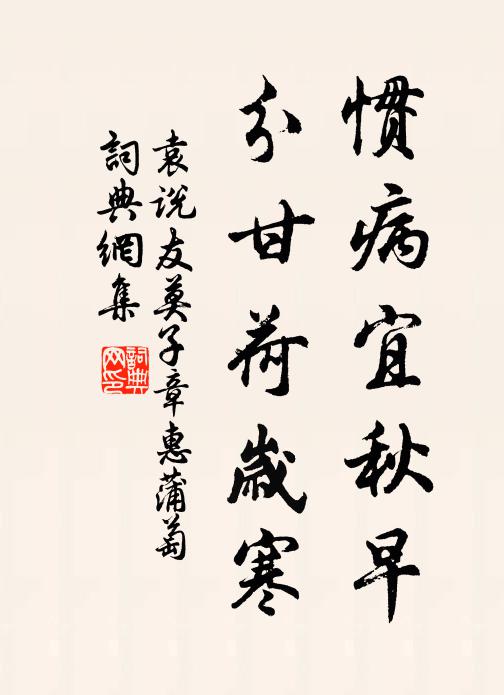 惯病宜秋早
分甘荷歲寒
袁说友莫子章惠蒲萄
詞典網集
詞典网印